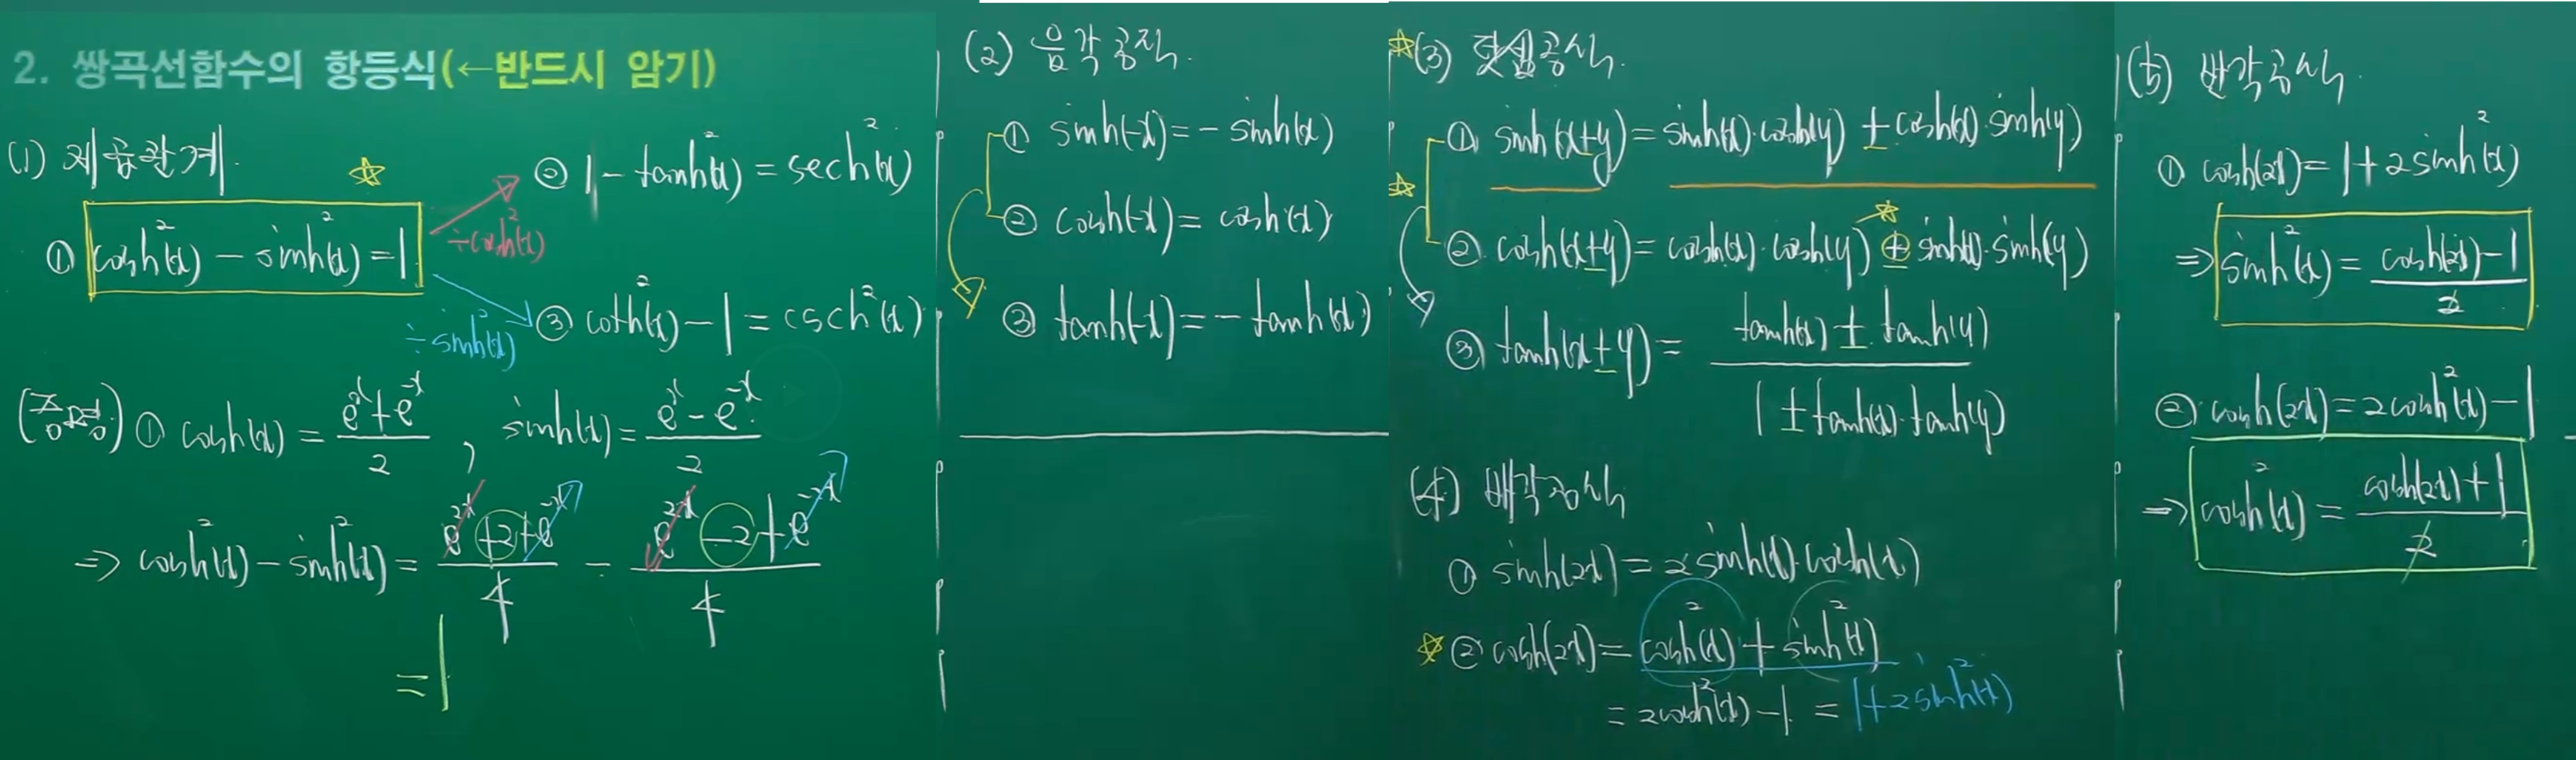 2. 쌍곡선함수의 항등식(←반드시 암기)
(1) 제곱관계.
① cosh²(x) - sinh²(x) = 1
÷cosh²(x)
② 1 - tanh²(x) = sech²(x)
÷sinh²(x)
③ coth²(x) - 1 = csch²(x)
(증명) ① cosh(x) = (eˣ + e⁻ˣ)/2 , sinh(x) = (eˣ - e⁻ˣ)/2
⇒ cosh²(x) - sinh²(x) = (e²ˣ + 2 + e⁻²ˣ)/4 - (e²ˣ - 2 + e⁻²ˣ)/4
= 1
(2) 음각공식.
① sinh(-x) = - sinh(x)
② cosh(-x) = cosh(x)
③ tanh(-x) = - tanh(x)
☆(3) 덧셈공식.
① sinh(x±y) = sinh(x)·cosh(y) ± cosh(x)·sinh(y)
② cosh(x±y) = cosh(x)·cosh(y) ± sinh(x)·sinh(y)
③ tanh(x±y) = (tanh(x) ± tanh(y))/(1 ± tanh(x)·tanh(y))
(4) 배각공식
① sinh(2x) = 2sinh(x)·cosh(x)
☆② cosh(2x) = cosh²(x) + sinh²(x)
= 2cosh²(x) - 1 = 1 + 2sinh²(x)
(5) 반각공식.
① cosh(2x) = 1 + 2sinh²(x)
⇒ sinh²(x) = (cosh(2x) - 1)/2
② cosh(2x) = 2cosh²(x) - 1
⇒ cosh²(x) = (cosh(2x) + 1)/2